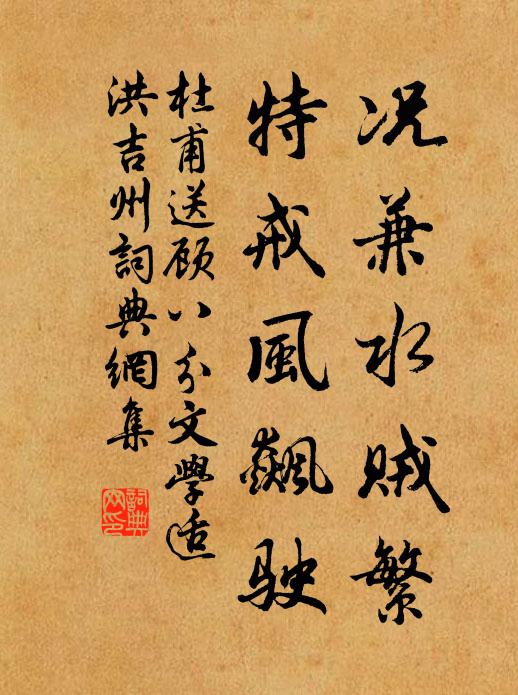 况兼水贼繁
特戒风飙驶
杜甫送顾八分文學适
洪吉州詞典網集
詞典网印